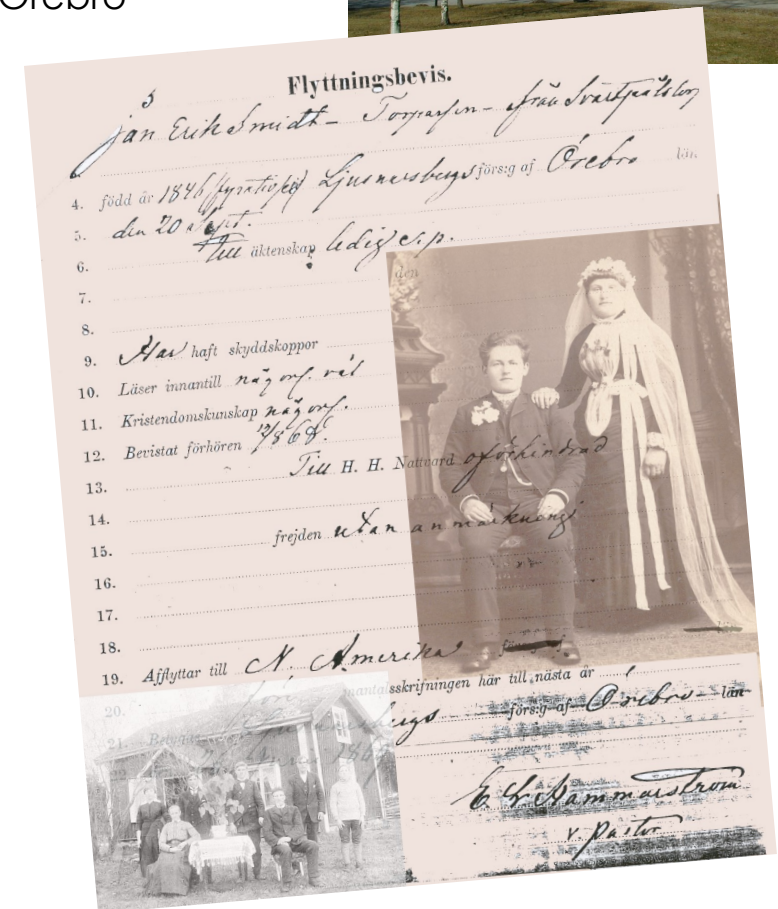 Örebro
Flyttningsbevis.
3
Jan Erik Smidt - Torparson - från
4. född år 1846 Ljusnarsbergs förs:g af Örebro län
5. den 20 sept.
6. Till äktenskap ledig c.p.
den
7.
8.
9. Har haft skyddskoppor
10. Läser innantill någorl. väl
11. Kristendomskunskap någorl.
12. Bevistat förhören 68.
13. Till H. H. Nattvard oförhindrad
14.
15. frejden utan anmärkning
16.
17.
18.
19. Afflyttar till N. Amerika
20. mantalsskrifningen här till nästa år
21. förs:g af Örebro län
E L Hammarström
v. Pastor